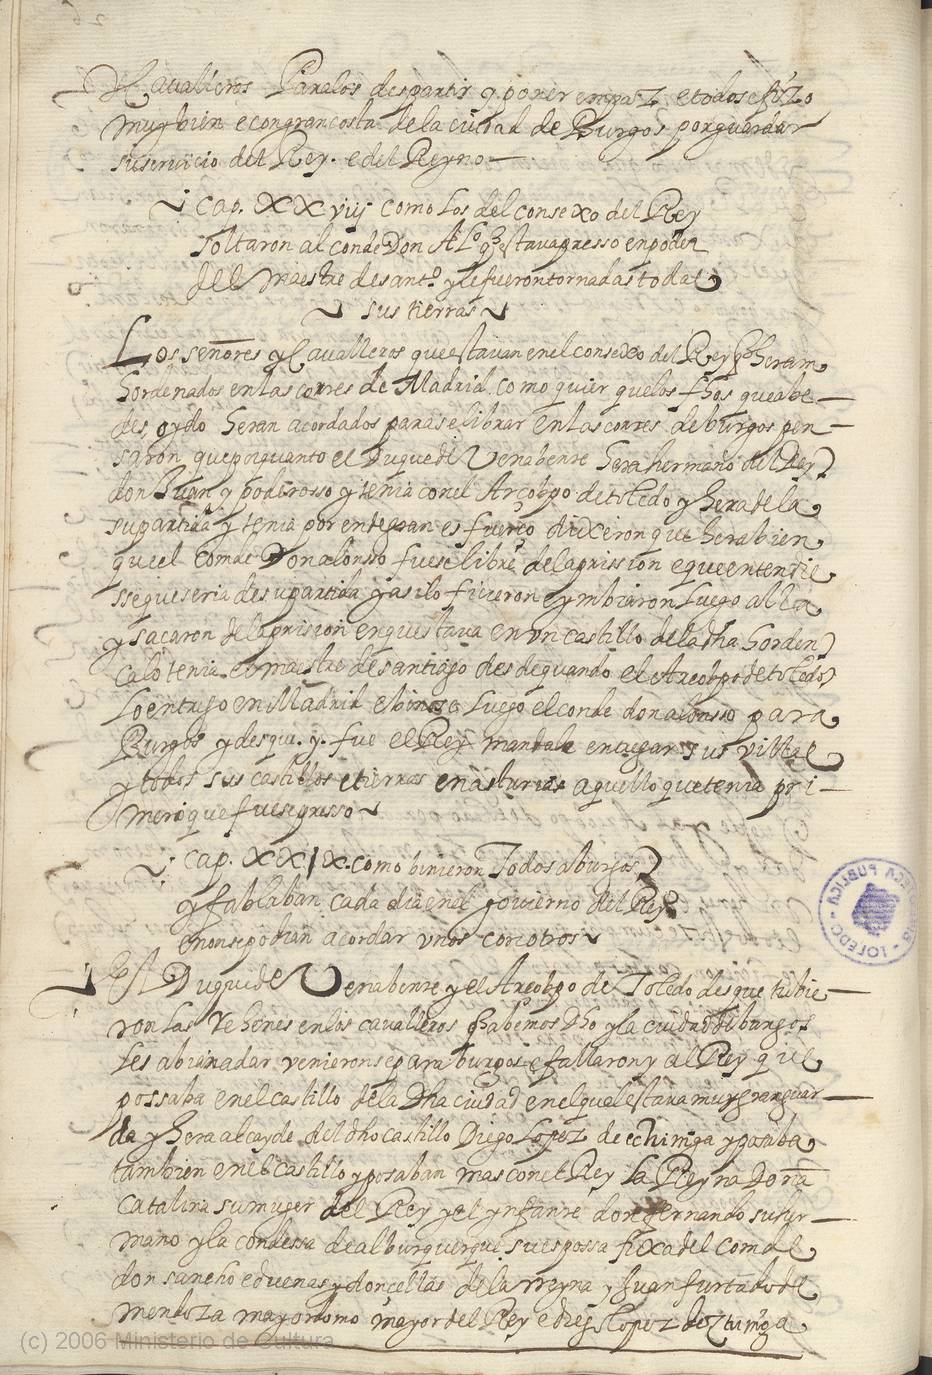 Cavalleros Paralos despartir y poner en paz e todo se fizo
muy bien e con gran costa de la ciudad de Burgos por guardar
su servicio del Rey. e del Reyno
Cap. XXviij como los del consexo del Rey
soltaron al conde Don Alº q estava presso en poder
del Maestre de santº y le fueron tornadas todas
sus tierras
Los señores y Cavalleros que estavan en el consexo del Rey q heran
hordenados en las cortes de Madrid. como quier que los fhos que abe-
des oydo heran acordados para se librar en las cortes de burgos pen-
saron que por quanto el Duque de Venabente hera hermano del Rey
don Juan y poderosso y tenia con el Arçobpo de toledo y hera de la
su partida y tenia por ende gran esfuerço dixeron que hera bien
que el conde Don alonsso fuese libre de la prission e que entendie
sse que seria de su partida y asi lo ficieron e ymbiaron luego alla
y sacaron de la prision en que estava en un castillo de la dha horden
ca lo tenia el maestre de santiago desde quando el Arcobpo de toledo
lo entrego en Madrid e bino se luego el conde don alonsso para
Burgos y desque. y. fue el Rey mandale entregar sus villas
y todos sus castillos e tierras en asturias aquello que tenia pri-
mero que fuese presso
Cap. XXIX. como binieron Todos a burgos
y fablaban cada dia en el govierno del Rey
e non se podian acordar unos con otros
El Duque de Venabente y el Arcobpo de Toledo desque tubie-
ron las rehenes en los cavalleros q habemos dho y la ciudad de burgos
les abia a dar venieronse para burgos e fallaron y al Rey que
possaba en el castillo de la Dha ciudad en el qual estava muy gran guar-
da y hera alcayde del dho castillo Diego Lopez de echuniga y posaba
tambien en el castillo y posaban mas con el Rey la Reyna Doña
Catalina su muger del Rey y el ynfante don fernando su hr-
mano y la condessa de alburquerque su esposa fixa del conde
don sancho e duenas y doncellas de la rreyna y Juan furtado de
mendoza mayordomo mayor del Rey e diego lopez de Ztuniga
(c) 2006 Ministerio de Cultura